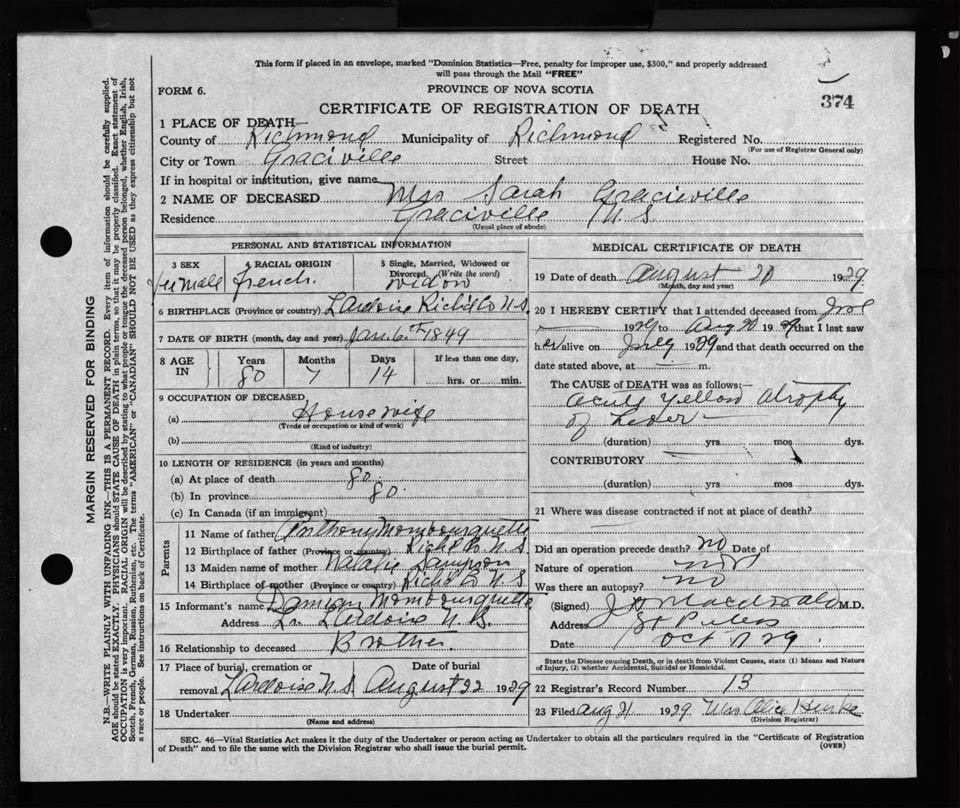 This form if placed in an envelope, marked "Dominion Statistics—Free, penalty for improper use, $300," and properly addressed
will pass through the Mail "FREE"
FORM 6.
PROVINCE OF NOVA SCOTIA
374
CERTIFICATE OF REGISTRATION OF DEATH
1 PLACE OF DEATH
County of Richmond Municipality of Richmond Registered No.
(For use of Registrar General only)
City or Town Graciville Street House No.
If in hospital or institution, give name
2 NAME OF DECEASED Mrs Sarah Gracieville
Residence Graciville N. S.
(Usual place of abode)
PERSONAL AND STATISTICAL INFORMATION
3 SEX 4 RACIAL ORIGIN 5 Single, Married, Widowed or
Divorced. (Write the word)
Female French. Widow
6 BIRTHPLACE (Province or country) L'Ardoise Richd Co N.S.
7 DATE OF BIRTH (month, day and year) Jan. 6th 1849
8 AGE IN Years Months Days If less than one day,
80 7 14 hrs. or min.
9 OCCUPATION OF DECEASED
(a) Housewife
(Trade or occupation or kind of work)
(b)
(Kind of industry)
10 LENGTH OF RESIDENCE (in years and months)
(a) At place of death 80.
(b) In province 80.
(c) In Canada (if an immigrant)
Parents
11 Name of father Anthony Mombourquette
12 Birthplace of father (Province or country) Richd Co N.S.
13 Maiden name of mother Natalie Sampson
14 Birthplace of mother (Province or country) Richd Co N.S
15 Informant's name Damian Mombourquette
Address Lr. L'Ardoise N.S.
16 Relationship to deceased Brother.
17 Place of burial, cremation or Date of burial
removal L'Ardoise N.S August 22 1929
18 Undertaker
(Name and address)
MEDICAL CERTIFICATE OF DEATH
19 Date of death August 20 1929
(Month, day and year)
20 I HEREBY CERTIFY that I attended deceased from
1929 to Aug 20 1929 that I last saw
her alive on July 1929 and that death occurred on the
date stated above, at m.
The CAUSE OF DEATH was as follows:—
Acute Yellow Atrophy
of Liver
(duration) yrs. mos. dys.
CONTRIBUTORY
(duration) yrs. mos. dys.
21 Where was disease contracted if not at place of death?
Did an operation precede death? no Date of
Nature of operation
Was there an autopsy? no
(Signed) MacDonald M.D.
Address St Peters
Date Oct 7 29
State the Disease causing Death, or in death from Violent Causes, state (1) Means and Nature
of Injury, (2) whether Accidental, Suicidal or Homicidal.
22 Registrar's Record Number 13
23 Filed Aug 21 1929 Mrs Alice Burke
(Division Registrar)
SEC. 46—Vital Statistics Act makes it the duty of the Undertaker or person acting as Undertaker to obtain all the particulars required in the "Certificate of Registration
of Death" and to file the same with the Division Registrar who shall issue the burial permit.
(OVER)
MARGIN RESERVED FOR BINDING
N.B.—WRITE PLAINLY WITH UNFADING INK—THIS IS A PERMANENT RECORD. Every item of information should be carefully supplied.
AGE should be stated EXACTLY. PHYSICIANS should STATE CAUSE OF DEATH in plain terms, so that it may be properly classified. Exact statement of
OCCUPATION is very important. RACIAL ORIGIN will be described by stating to what people or tongue the deceased person belonged, whether English, Irish,
Scotch, French, German, Russian, Ruthenian, etc. The terms "AMERICAN" or "CANADIAN" SHOULD NOT BE USED as they express citizenship but not
a race or people. See instructions on back of Certificate.